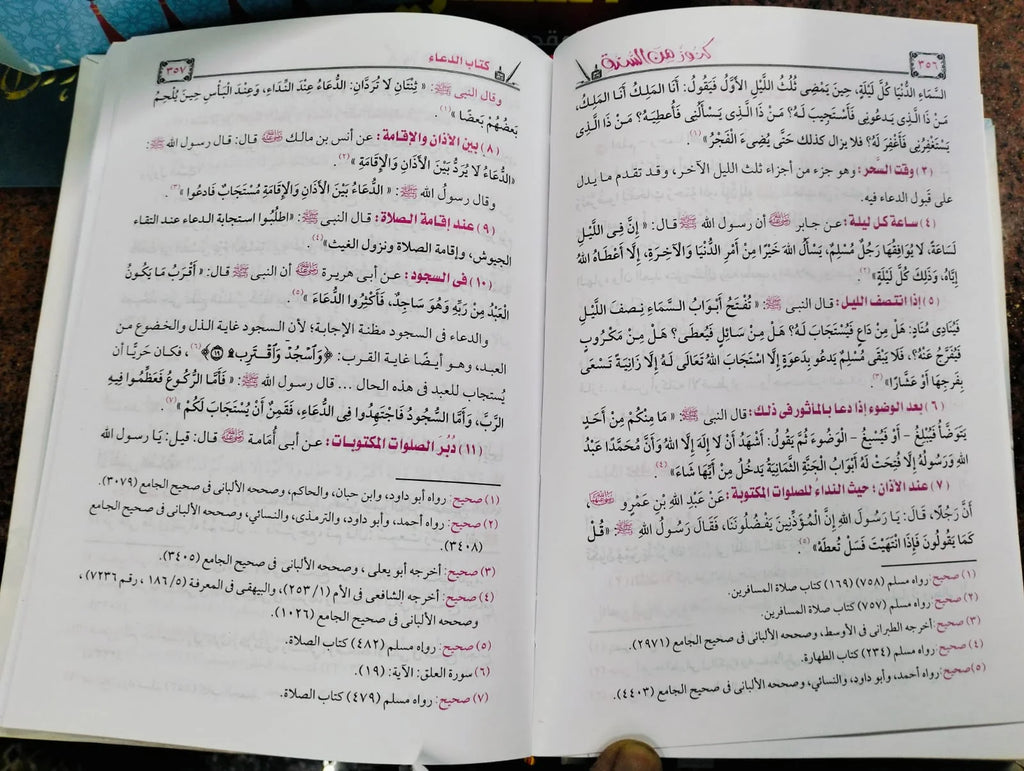 ٣٥٦
كنوز من السنة
السَّمَاءِ الدُّنْيَا كُلَّ لَيْلَةٍ، حِينَ يَمْضِى ثُلُثُ اللَّيْلِ الأَوَّلُ فَيَقُولُ: أَنَا المَلِكُ أَنَا المَلِكُ،
مَنْ ذَا الَّذِى يَدعُونِى فَأَسْتَجِيبَ لَهُ؟ مَنْ ذَا الَّذِى يَسْأَلُنِى فَأُعطِيَهُ؟ مَنْ ذَا الَّذِى
يَسْتَغْفِرُنِى فَأَغْفِرَ لَهُ؟ فلا يزال كذلك حَتَّى يُضِىءَ الْفَجْرُ» (١).
(٣) وقت السَّحر: وهو جزء من أجزاء ثلث الليل الآخر، وقد تقدم ما يدل
على قَبول الدعاء فيه.
(٤) ساعة كل ليلة: عن جابر ﵁ أن رسول الله ﷺ قال: « إِنَّ فِى اللَّيْلِ
لَسَاعَةً، لَا يُوَافِقُهَا رَجُلٌ مُسْلِمٌ، يَسْأَلُ اللهَ خَيْرًا مِنْ أَمْرِ الدُّنْيَا وَالآخِرَةِ، إِلَّا أَعْطَاهُ اللهُ
إِيَّاهُ، وَذَلِكَ كُلَّ لَيْلَةٍ» (٢).
(٥) إذا انتصف الليل: قال النبى ﷺ: « تُفْتَحُ أَبْوَابُ السَّمَاءِ نِصفَ اللَّيْلِ
فَيُنَادِى مُنَادٍ: هَلْ مِنْ دَاعٍ فَيُسْتَجَابَ لَهُ؟ هَلْ مِنْ سَائِلٍ فَيُعطَى؟ هَلْ مِنْ مَكْرُوبٍ
فَيُفَرَّجَ عَنْهُ؟، فَلَا يَبْقَى مُسْلِمٌ يَدعُو بِدَعوَةٍ إِلَّا اسْتَجَابَ اللهُ تَعَالَى لَهُ إِلَّا زَانِيَةٌ تَسْعَى
بِفَرجِهَا أَوْ عَشَّارًا» (٣).
(٦) بعد الوضوء إذا دعا بالمأثور فى ذلك: قال النبى ﷺ: « مَا مِنْكُمْ مِنْ أَحَدٍ
يَتَوَضَّأُ فَيُبْلِغُ - أَوْ فَيُسْبِغُ - الْوَضُوءَ ثُمَّ يَقُولُ: أَشْهَدُ أَنْ لَا إِلَهَ إِلَّا اللهُ وَأَنَّ مُحَمَّدًا عَبْدُ
اللهِ وَرَسُولُهُ إِلَّا فُتِحَتْ لَهُ أَبْوَابُ الْجَنَّةِ الثَّمَانِيَةُ يَدخُلُ مِنْ أَيِّهَا شَاءَ» (٤).
(٧) عند الأذان ؛ حيث النداء للصلوات المكتوبة: عَنْ عَبدِ اللهِ بْنِ عَمْرٍو ﵄،
أَنَّ رَجُلًا، قَالَ: يَا رَسُولَ اللهِ إِنَّ الْمُؤَذِّنِينَ يَفْضُلُونَنَا، فَقَالَ رَسُولُ اللهِ ﷺ: « قُلْ
كَمَا يَقُولُونَ فَإِذَا انْتَهَيْتَ فَسَلْ تُعطَهْ» (٥).
(١) صحيح: رواه مسلم (٧٥٨) (١٦٩) كتاب صلاة المسافرين.
(٢) صحيح: رواه مسلم (٧٥٧) كتاب صلاة المسافرين.
(٣) صحيح: أخرجه الطبرانى فى الأوسط، وصححه الألبانى فى صحيح الجامع (٢٩٧١).
(٤) صحيح: رواه مسلم (٢٣٤) كتاب الطهارة.
(٥) صحيح: رواه أحمد، وأبو داود، والنسائي، وصححه الألبانى فى صحيح الجامع (٤٤٠٣).
كتاب الدعاء
٣٥٧
وقال النبى ﷺ: « ثِنْتَانِ لَا تُرَدَّانِ: الدُّعَاءُ عِنْدَ النِّدَاءِ، وَعِنْدَ الْبَأْسِ حِينَ يُلْحِمُ
بَعضُهُمْ بَعضًا » (١).
(٨) بين الأذان والإقامة: عن أنس بن مالك ﵁ قال: قال رسول الله ﷺ:
«الدُّعَاءُ لَا يُرَدُّ بَيْنَ الْأَذَانِ وَالْإِقَامَةِ » (٢).
وقال رسولُ الله ﷺ: « الدُّعَاءُ بَيْنَ الْأَذَانِ وَالْإِقَامَةِ مُسْتَجَابٌ فَادعُوا» (٣).
(٩) عند إقامة الصلاة: قال النبى ﷺ: «اطلُبُوا استجابة الدعاء عند التقاء
الجيوش، وإقامة الصلاة ونزول الغيث» (٤).
(١٠) فى السجود: عن أبى هريرة ﵁ أن النبى ﷺ قال: « أَقْرَبُ مَا يَكُونُ
الْعَبْدُ مِنْ رَبِّهِ وَهُوَ سَاجِدٌ، فَأَكْثِرُوا الدُّعَاءَ » (٥).
والدعاء فى السجود مظنة الإجابة؛ لأن السجود غاية الذل والخضوع من
العبد، وهو أيضًا غاية القرب: ﴿وَٱسْجُدْ وَٱقْتَرِب۩ ١٩﴾ (٦)، فكان حَريًّا أن
يُستجاب للعبد فى هذه الحال ... قال رسول الله ﷺ: « فَأَمَّا الرُّكُوعُ فَعَظِّمُوا فِيهِ
الرَّبَّ، وَأَمَّا السُّجُودُ فَاجْتَهِدُوا فِى الدُّعَاءِ، فَقَمِنٌ أَنْ يُسْتَجَابَ لَكُمْ » (٧).
(١١) دُبُر الصلوات المكتوبات: عن أبى أُمَامة ﵁ قال: قيل: يا رسول الله
(١) صحيح: رواه أبو داود، وابن حبان، والحاكم، وصححه الألبانى فى صحيح الجامع (٣٠٧٩).
(٢) صحيح: رواه أحمد، وأبو داود، والترمذى، والنسائي، وصححه الألبانى فى صحيح الجامع
(٣٤٠٨).
(٣) صحيح: أخرجه أبو يعلى ، وصححه الألبانى فى صحيح الجامع (٣٤٠٥).
(٤) صحيح: أخرجه الشافعى فى الأم (١/ ٢٥٣)، والبيهقى فى المعرفة (٥/ ١٨٦ ، رقم ٧٢٣٦) ،
وصححه الألبانى فى صحيح الجامع (١٠٢٦).
(٥) صحيح: رواه مسلم (٤٨٢) كتاب الصلاة.
(٦) سورة العلق: الآية: (١٩).
(٧) صحيح: رواه مسلم (٤٧٩) كتاب الصلاة.